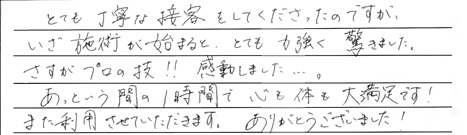 とても丁寧な接客をしてくださったのですが、
いざ施術が始まると、とても力強く驚きました。
さすがプロの技!! 感動しました…。
あっという間の1時間で心も体も大満足です!
また利用させていただきます。ありがとうございました!